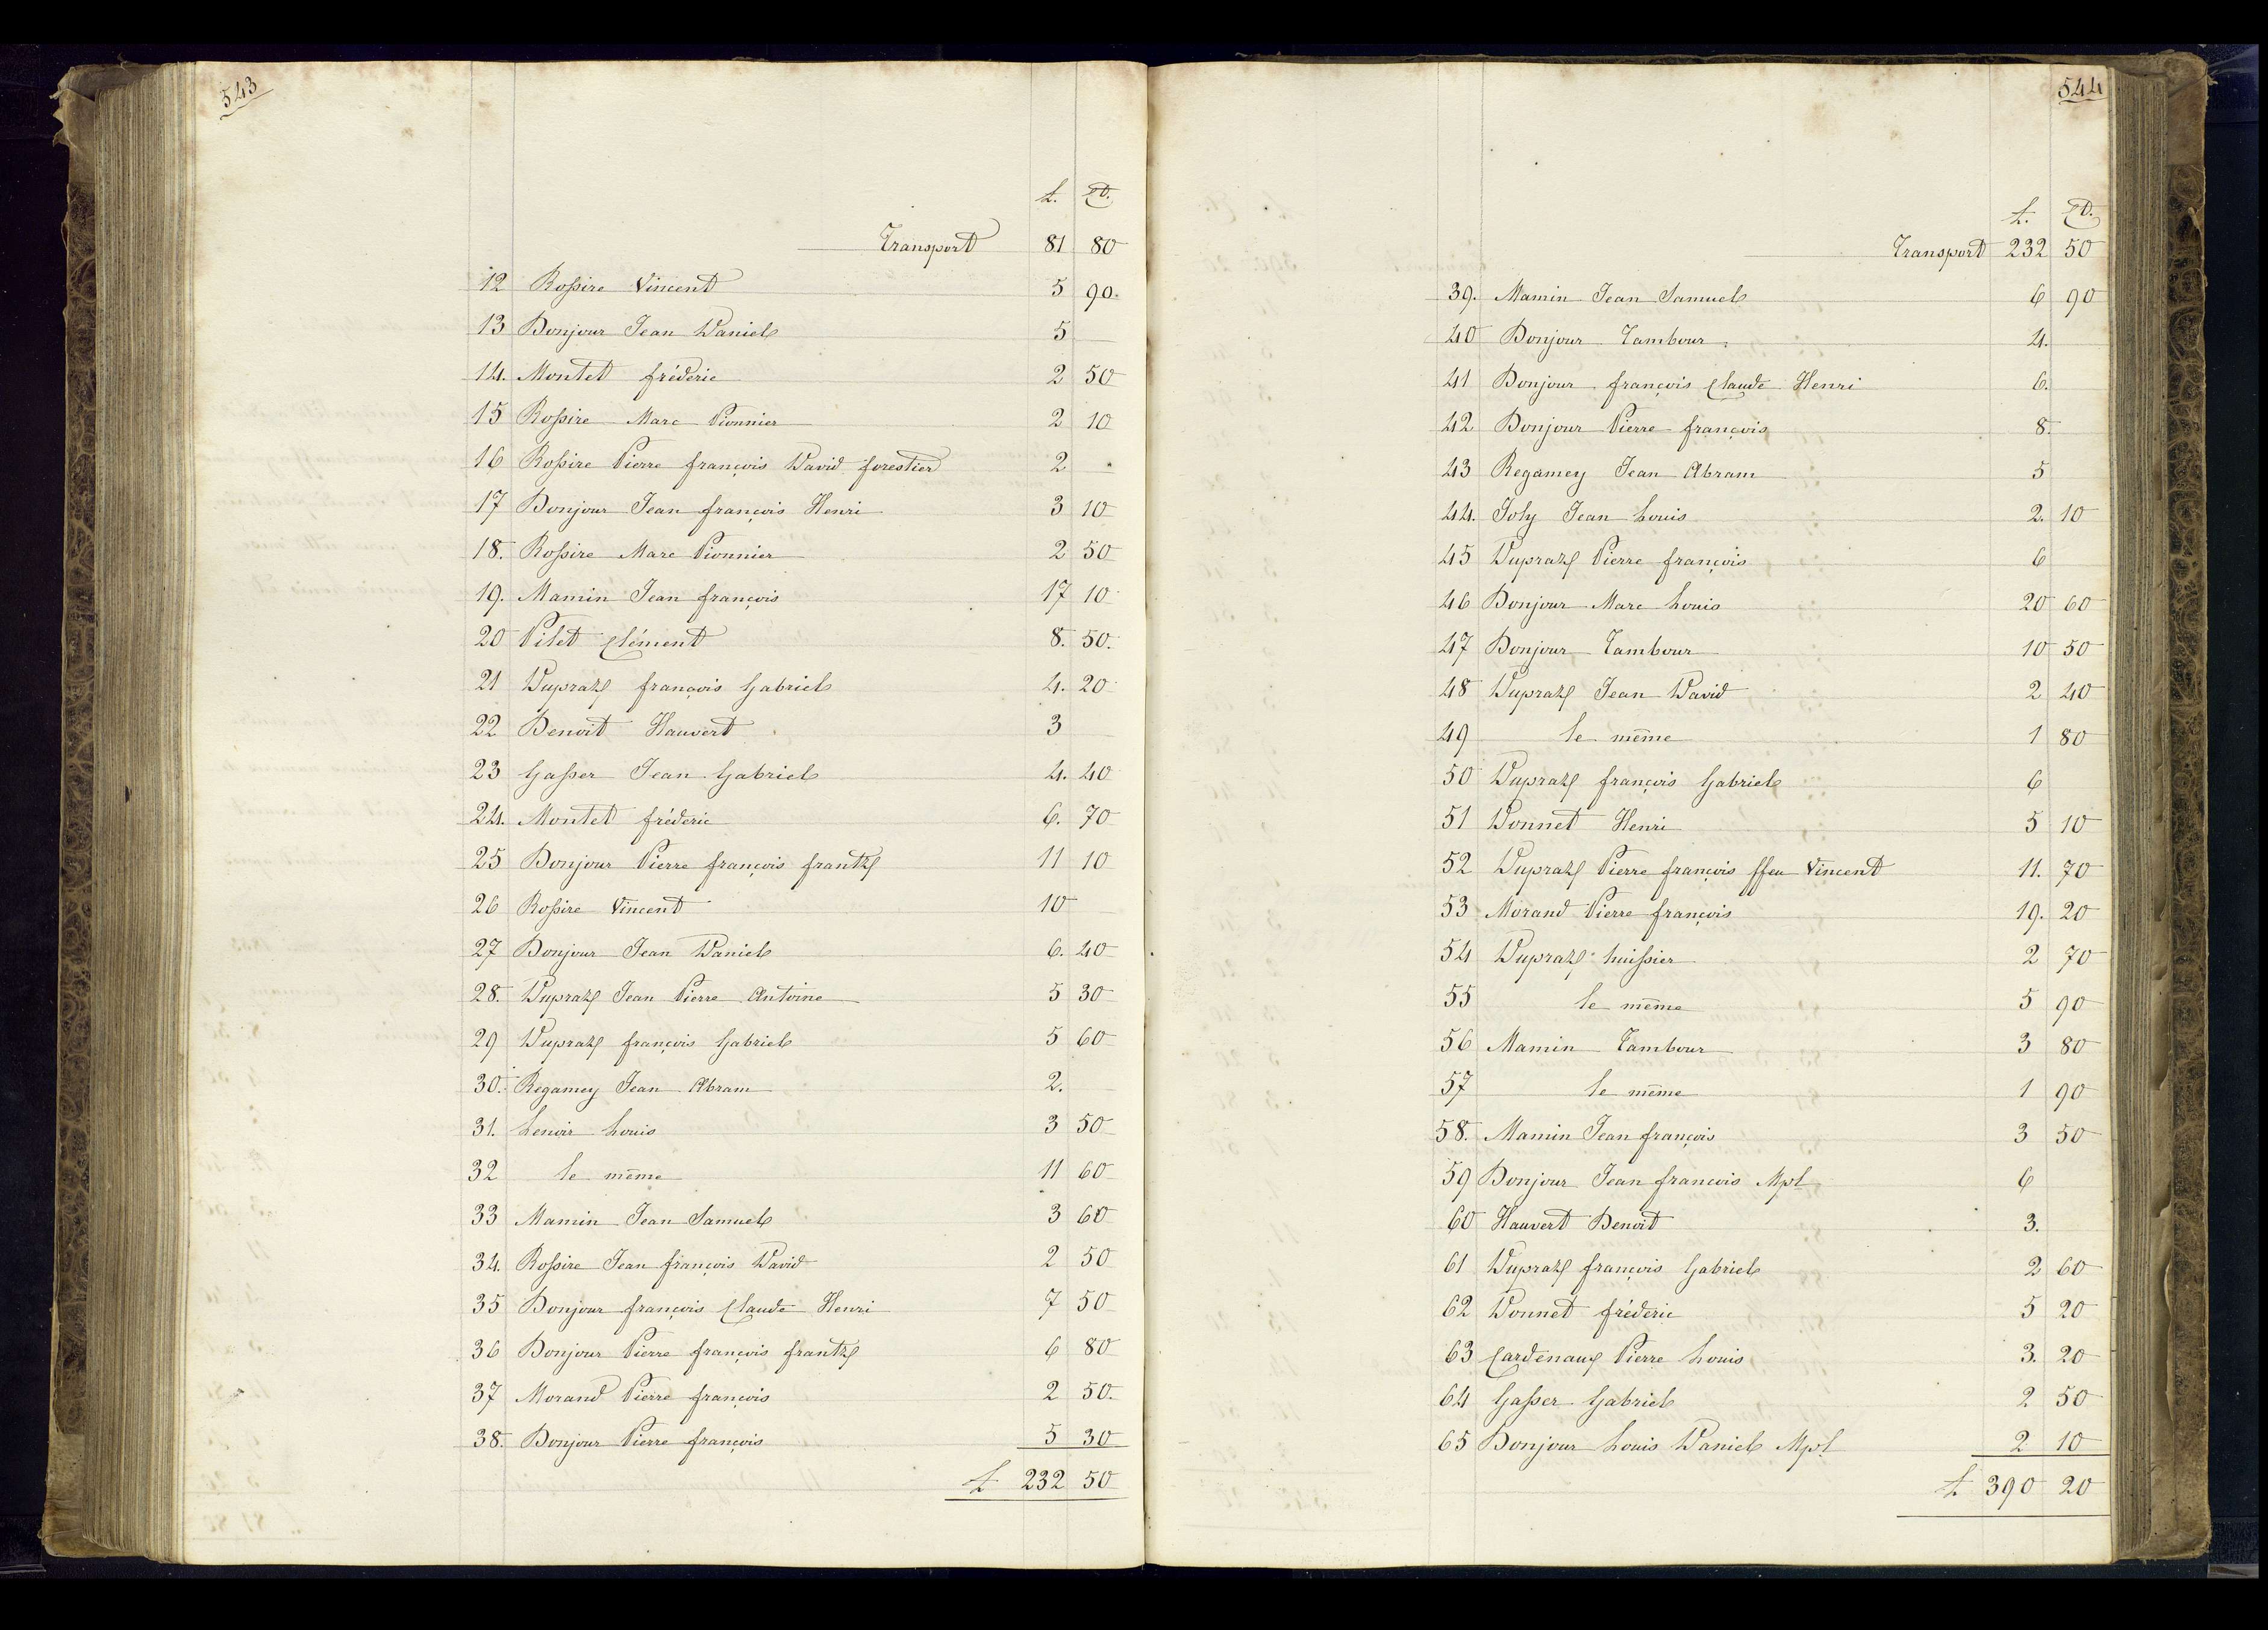 543
L. Ct.
Transport 81 80
12 Rossire Vincent 5 90.
13 Bonjour Jean Daniel 5
14. Montet fréderic 2 50
15 Rossire Marc Pionnier 2 10
16 Rossire Pierre françois David forestier 2
17 Bonjour Jean françois Henri 3 10
18. Rossire Marc Pionnier 2 50
19. Mamin Jean françois 17 10
20 Pilet Clément 8. 50.
21 Dupratz françois Gabriel 4. 20
22 Benoit Hauvert 3
23 Gasser Jean Gabriel 4. 40
24. Montet fréderic 6. 70
25 Bonjour Pierre françois frantz 11 10
26 Rossire Vincent 10
27 Bonjour Jean Daniel 6. 40
28. Dupratz Jean Pierre Antoine 5 30
29 Dupratz françois Gabriel 5 60
30. Regamey Jean Abram 2.
31. Lenoir Louis 3 50
32 le même 11 60
33 Mamin Jean Samuel 3 60
34. Rossire Jean françois David 2 50
35 Bonjour françois Claude Henri 7 50
36 Bonjour Pierre françois frantz 6 80
37 Morand Pierre françois 2 50.
38. Bonjour Pierre françois 5 30
L 232 50
544
L. Ct.
Transport 232 50
39. Mamin Jean Samuel 6 90
40 Bonjour Tambour 4.
41 Bonjour françois Claude Henri 6.
42 Bonjour Pierre françois 8.
43 Regamey Jean Abram 5
44. Joly Jean Louis 2. 10
45 Dupratz Pierre françois 6
46 Bonjour Marc Louis 20 60
47 Bonjour Tambour 10 50
48 Dupratz Jean David 2 40
49 le même 1 80
50 Dupratz françois Gabriel 6
51 Donnet Henri 5 10
52 Dupratz Pierre françois ffeu Vincent 11. 70
53 Morand Pierre françois 19. 20
54 Dupratz huissier 2 70
55 le même 5 90
56 Mamin Tambour 3 80
57 le même 1 90
58. Mamin Jean françois 3 50
59 Bonjour Jean francois Mpl 6
60 Hauvert Benoit 3.
61 Dupratz françois Gabriel 2 60
62 Donnet fréderic 5 20
63 Cardenaux Pierre Louis 3. 20
64 Gasser Gabriel 2 50
65 Bonjour Louis Daniel Mpl 2 10
L 390 20